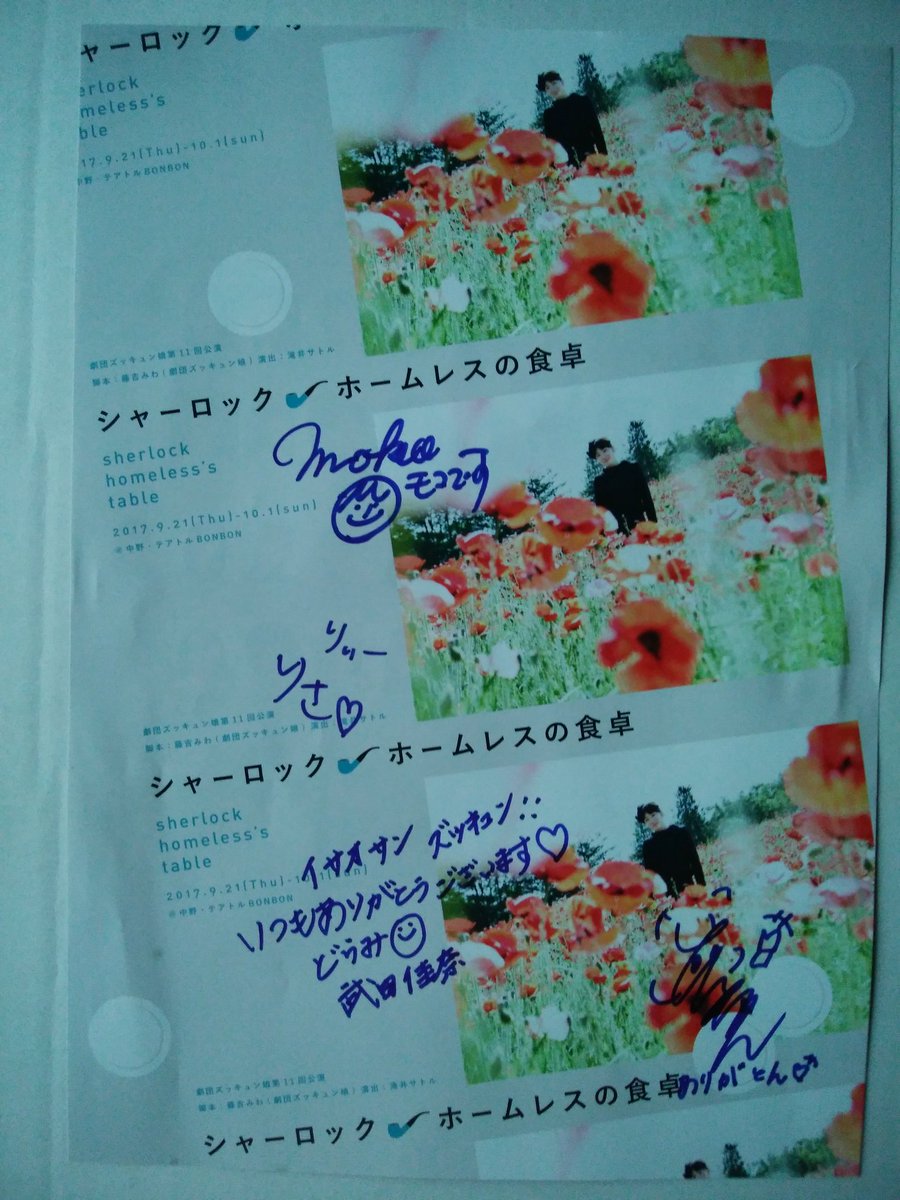 ャーロック
erlock
meless's
ble
017.9.21(Thu)-10.1(sun)
中野・テアトルBONBON
劇団ズッキュン娘第11回公演
脚本：藤吉みわ(劇団ズッキュン娘) 演出：滝井サトル
シャーロック ホームレスの食卓
sherlock
homeless's
table
2017.9.21(Thu)-10.1(sun)
@中野・テアトルBONBON
moko
モコです
りりー
りさ♡
劇団ズッキュン娘第11回公演
脚本：藤吉みわ(劇団ズッキュン娘) 演出 サトル
シャーロック ホームレスの食卓
sherlock
homeless's
table
2017.9.21(Thu)-
@中野・テアトルBONBON
イサオサン ズッキュン!!
いつもありがとうございます♡
どらみ
武田佳奈
ありがとん
劇団ズッキュン娘第11回公演
脚本：藤吉みわ(劇団ズッキュン娘) 演出：滝井サトル
シャーロック ホームレスの食卓